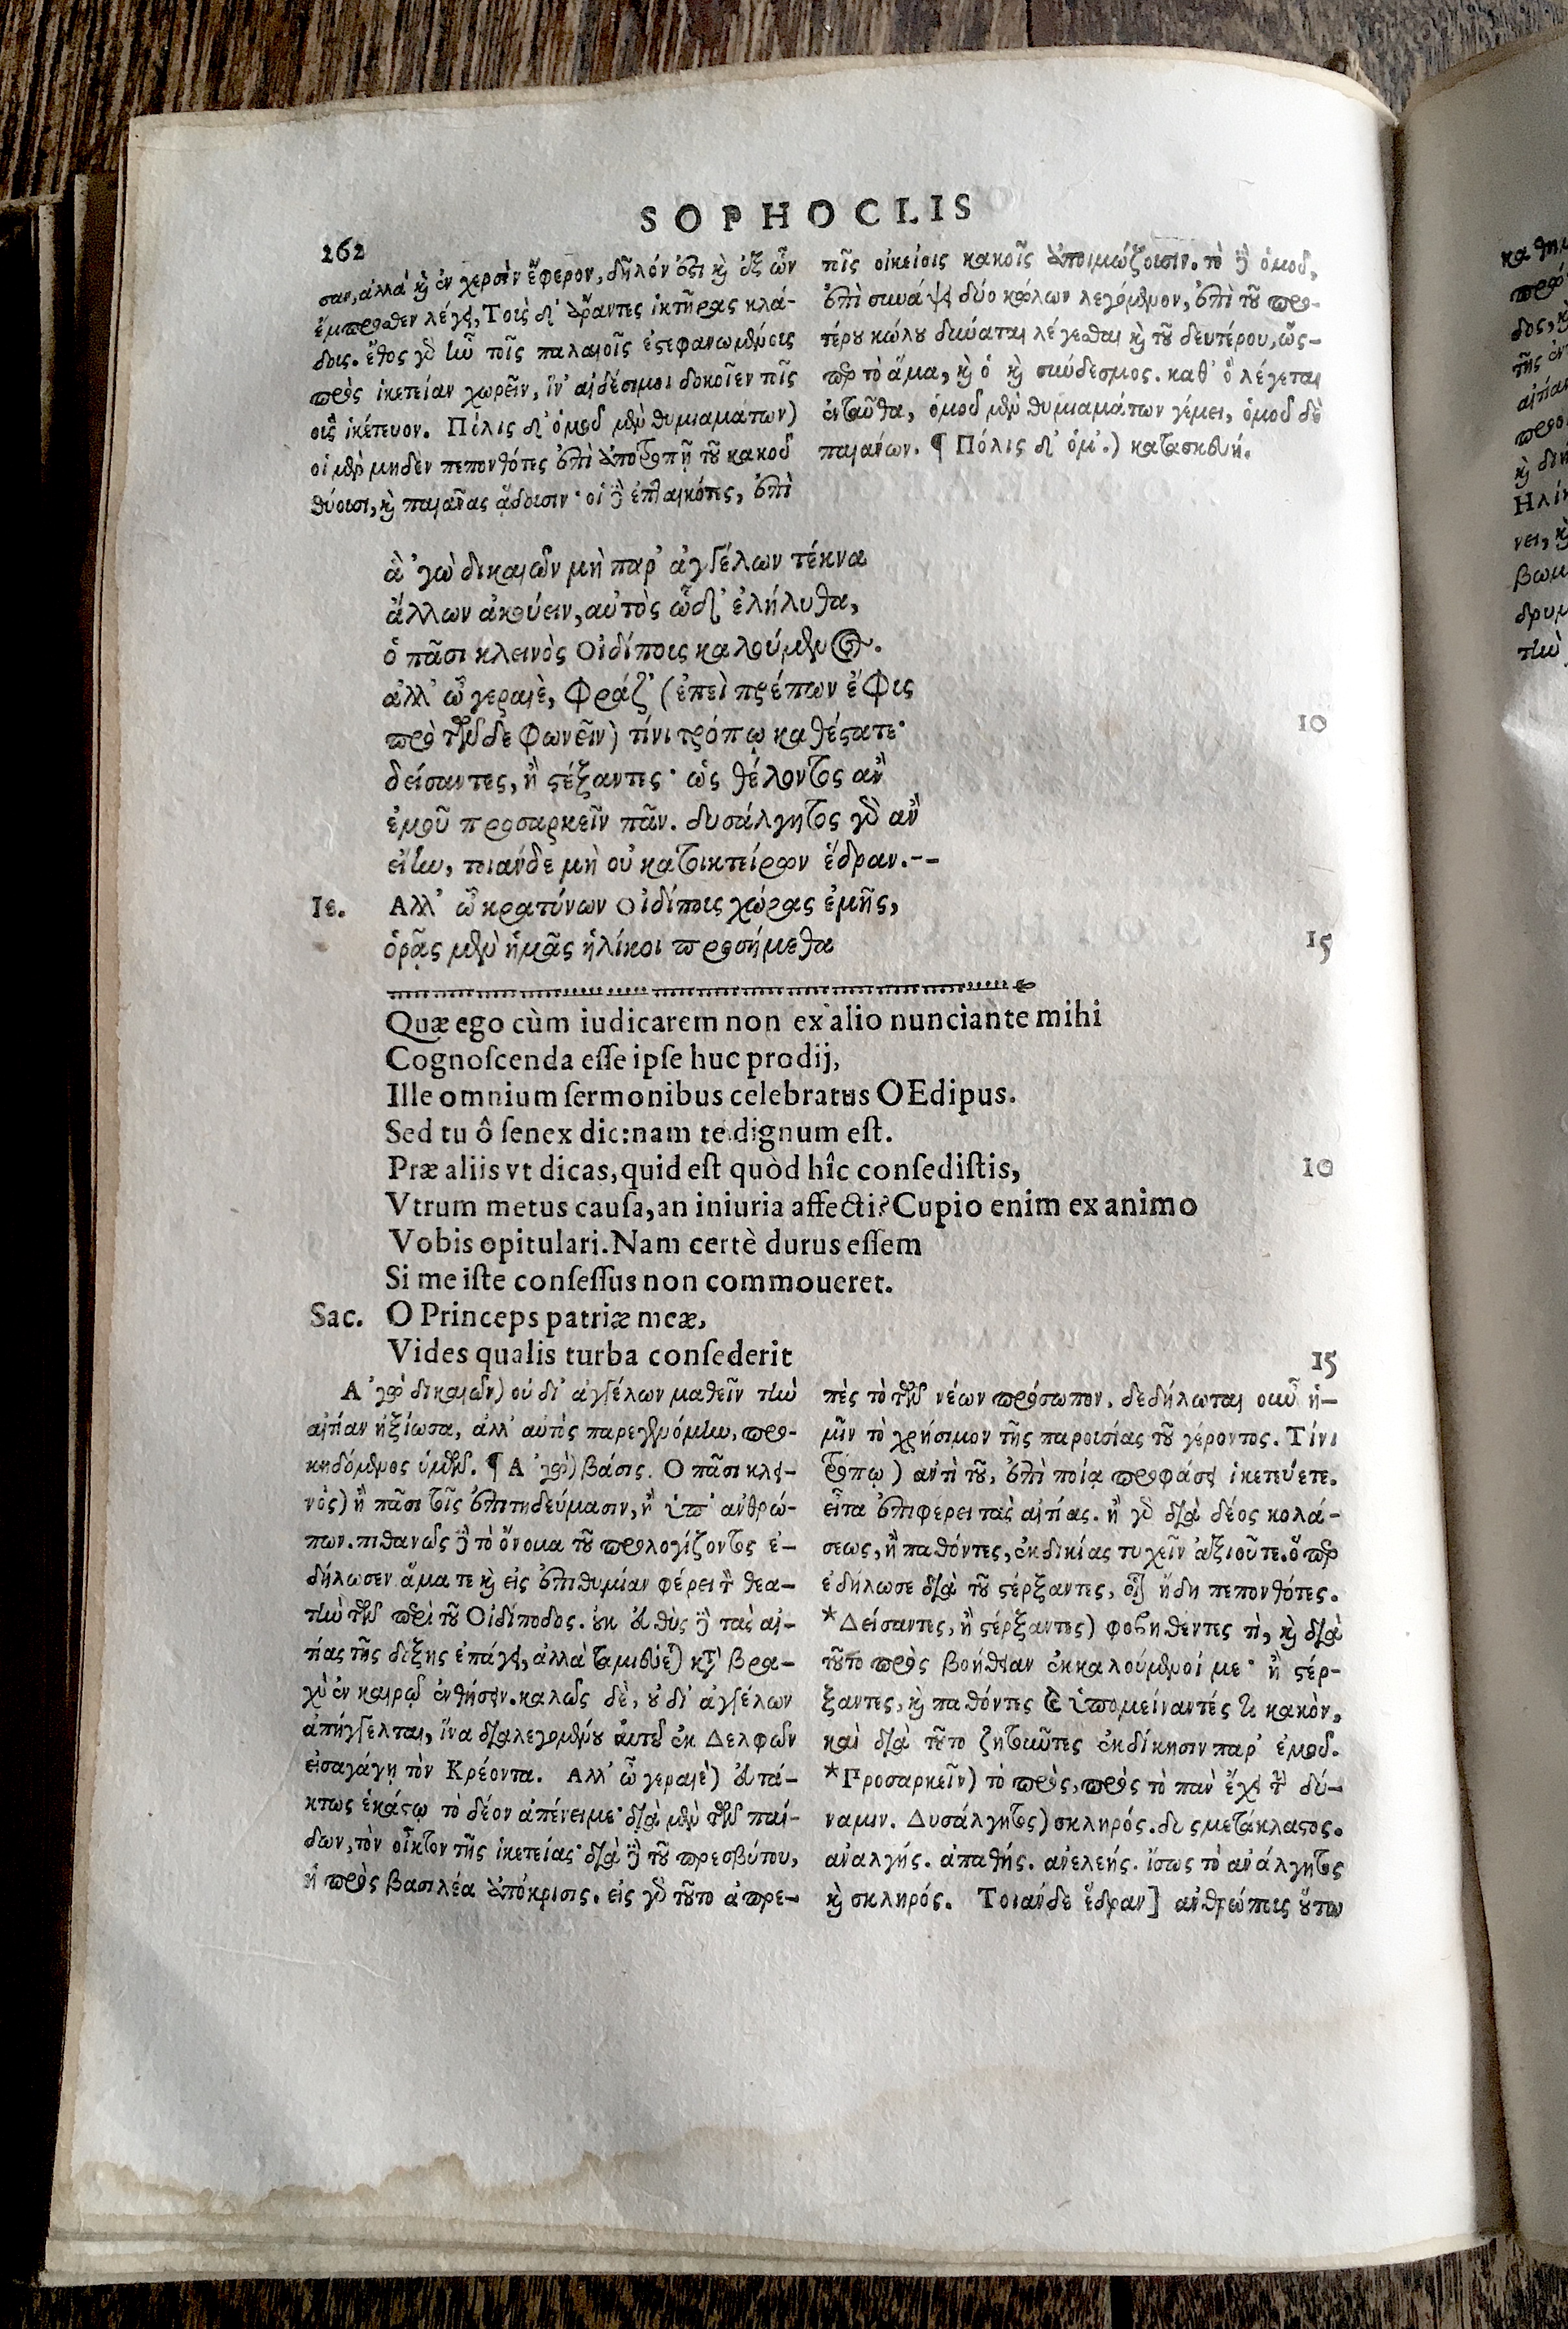 SOPHOCLIS
262
σαν, ἀλλὰ καὶ ἐν χερσὶν ἔφερον, δῆλόν ἐστι καὶ ἐξ ὧν
ἔμπροσθεν λέγει, Τοῖς δ' ἄραντες ἱκτῆρας κλά-
δοις. ἔθος γὰρ ἦν τοῖς παλαιοῖς ἐστεφανωμένοις
πρὸς ἱκετείαν χωρεῖν, ἵν' αἰδέσιμοι δοκοῖεν τοῖς
οὓς ἱκέτευον. Πόλις δ' ὁμοῦ μὲν θυμιαμάτων)
οἱ μὲν μηδὲν πεπονθότες ἐπὶ ἀποτροπῇ τοῦ κακοῦ
θύουσι, καὶ παιᾶνας ᾄδουσιν· οἱ δὲ ἐπταικότες, ἐπὶ
τοῖς οἰκείοις κακοῖς ἀποιμώζουσιν. τὸ δὲ ὁμοῦ,
ἐπὶ συνάψει δύο κώλων λεγόμενον, ἐπὶ τοῦ προ-
τέρου κώλου δύναται λέγεσθαι καὶ τοῦ δευτέρου, ὥς-
περ τὸ ἅμα, καὶ ὁ καὶ σύνδεσμος. καθ' ὃ λέγεται
ἐνταῦθα, ὁμοῦ μὲν θυμιαμάτων γέμει, ὁμοῦ δὲ
παιάνων. ¶ Πόλις δ' ὁμ'.) κατασκευή.
ἃ 'γὼ δικαιῶν μὴ παρ' ἀγγέλων τέκνα
ἄλλων ἀκούειν, αὐτὸς ὧδ' ἐλήλυθα,
ὁ πᾶσι κλεινὸς Οἰδίπους καλούμενος.
ἀλλ' ὦ γεραιὲ, φράζ' (ἐπεὶ πρέπων ἔφυς
πρὸ τῶνδε φωνεῖν) τίνι τρόπῳ καθέστατε· 10
δείσαντες, ἢ στέξαντες· ὡς θέλοντος ἂν
ἐμοῦ προσαρκεῖν πᾶν. δυσάλγητος γὰρ ἂν
εἴην, τοιάνδε μὴ οὐ κατοικτείρων ἕδραν.--
Ιε. Αλλ' ὦ κρατύνων Οἰδίπους χώρας ἐμῆς,
ὁρᾷς μὲν ἡμᾶς ἡλίκοι προσήμεθα 15
Quæ ego cùm iudicarem non ex alio nunciante mihi
Cognoſcenda eſſe ipſe huc prodij,
Ille omnium ſermonibus celebratus OEdipus.
Sed tu ô ſenex dic: nam te dignum eſt.
Præ aliis vt dicas, quid eſt quòd hîc conſediſtis, 10
Vtrum metus cauſa, an iniuria affecti? Cupio enim ex animo
Vobis opitulari. Nam certè durus eſſem
Si me iſte conſeſſus non commoueret.
Sac. O Princeps patriæ meæ,
Vides qualis turba conſederit 15
Α 'γὼ δικαιῶν) οὐ δι' ἀγγέλων μαθεῖν τὴν
αἰτίαν ἠξίωσα, ἀλλ' αὐτὸς παρεγενόμην, προ-
κηδόμενος ὑμῶν. ¶ Α 'γὼ) βάσις. Ο πᾶσι κλει-
νὸς) ἢ πᾶσι τοῖς ἐπιτηδεύμασιν, ἢ ὑπ' ἀνθρώ-
πων. πιθανῶς δὲ τὸ ὄνομα τοῦ προλογίζοντος ἐ-
δήλωσεν ἅμα τε καὶ εἰς ἐπιθυμίαν φέρει τὸν θεα-
τὴν τῶν περὶ τοῦ Οἰδίποδος. οὐκ εὐθὺς δὲ τὰς αἰ-
τίας τῆς δείξης ἐπάγει, ἀλλὰ ταμιεύεται κατὰ βρα-
χὺ ἐν καιρῷ ἐνθήσειν. καλῶς δὲ, οὐ δι' ἀγγέλων
ἀπήγγελται, ἵνα διαλεγομένου αὐτοῦ ἐκ Δελφῶν
εἰσαγάγῃ τὸν Κρέοντα. Αλλ' ὦ γεραιὲ) εὐτά-
κτως ἑκάστῳ τὸ δέον ἀπένειμε· διὰ μὲν τῶν παί-
δων, τὸν οἶκτον τῆς ἱκετείας· διὰ δὲ τοῦ πρεσβύτου,
ἡ πρὸς βασιλέα ἀπόκρισις. εἰς γὰρ τοῦτο ἀπρε-
πὲς τὸ τῶν νέων πρόσωπον. δεδήλωται οὖν ἡ-
μῖν τὸ χρήσιμον τῆς παρουσίας τοῦ γέροντος. Τίνι
τρόπῳ) ἀντὶ τοῦ, ἐπὶ ποίᾳ προφάσει ἱκετεύετε.
εἶτα ἐπιφέρει τὰς αἰτίας. ἢ γὰρ διὰ δέος κολά-
σεως, ἢ παθόντες, ἐκδικίας τυχεῖν ἀξιοῦτε. ὅπερ
ἐδήλωσε διὰ τοῦ στέρξαντες, οἷον ἤδη πεπονθότες.
*Δείσαντες, ἢ στέρξαντες) φοβηθεντες τὶ, καὶ διὰ
τοῦτο πρὸς βοήθειαν ἐκκαλούμενοί με· ἢ στέρ-
ξαντες, καὶ παθόντες καὶ ὑπομείναντές τι κακὸν,
καὶ διὰ τοῦτο ζητοῦντες ἐκδίκησιν παρ' ἐμοῦ.
*Προσαρκεῖν) τὸ πρὸς, πρὸς τὸ πᾶν ἔχει τὴν δύ-
ναμιν. Δυσάλγητος) σκληρός. δυσμετάκλαστος.
ἀναλγής. ἀπαθής. ἀνελεής. ἴσως τὸ ἀνάλγητος
καὶ σκληρός. Τοιάνδε ἕδραν] ἀνθρώποις οὕτω